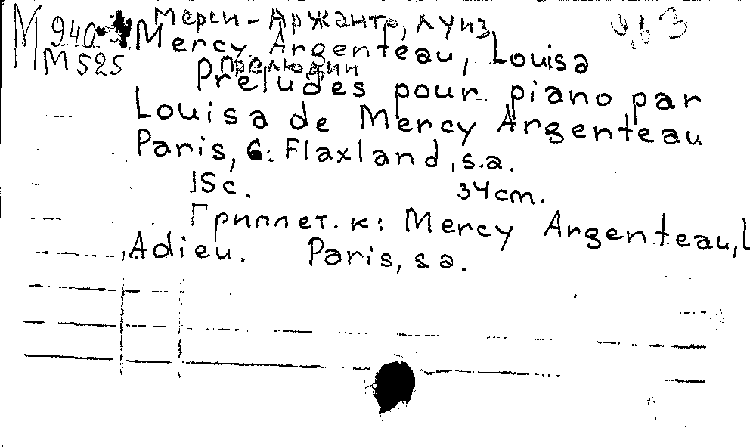 Мерси-Аржанто, Луиз
М 940
Mercy Argenteau, Louisa
M 525
Прелюдии
Preludes pour piano par
Louisa de Mercy Argenteau
Paris, G. Flaxland, s.a.
15 с. 34 cm.
Гриплет. к: Mercy Argenteau, L
Adieu. Paris, s.a.